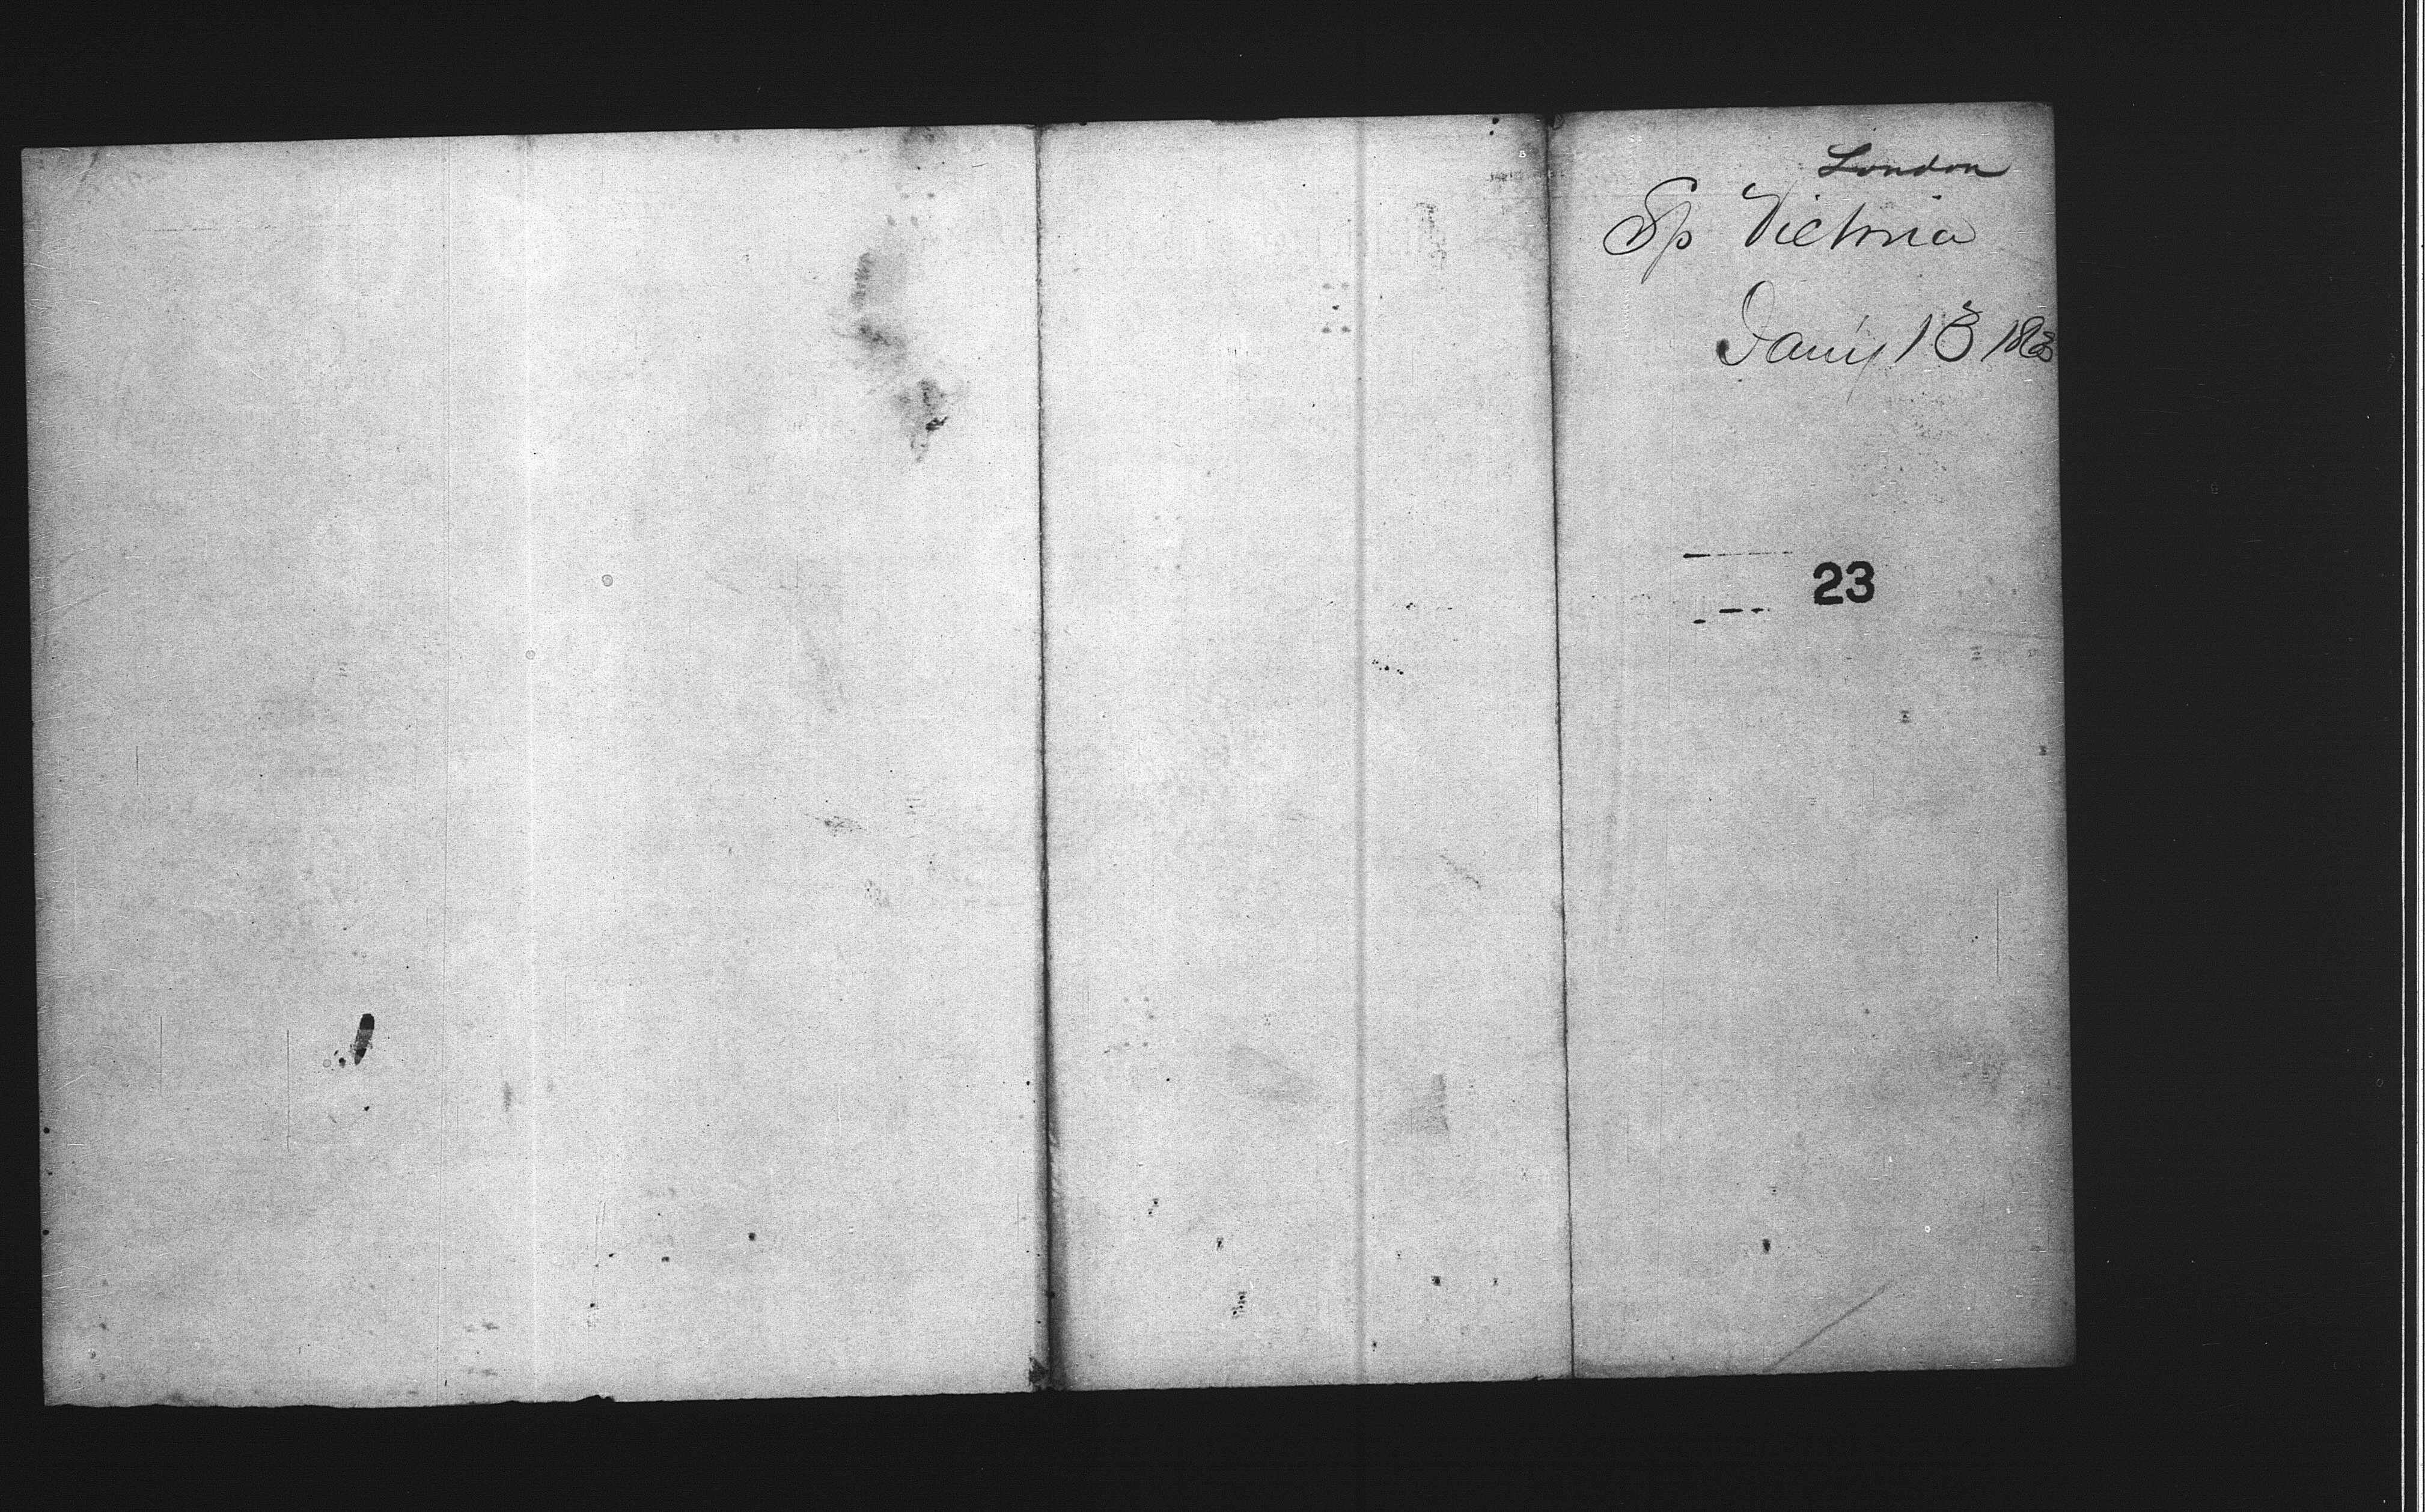 London
Sp Victoria
Jany 13 1863
23